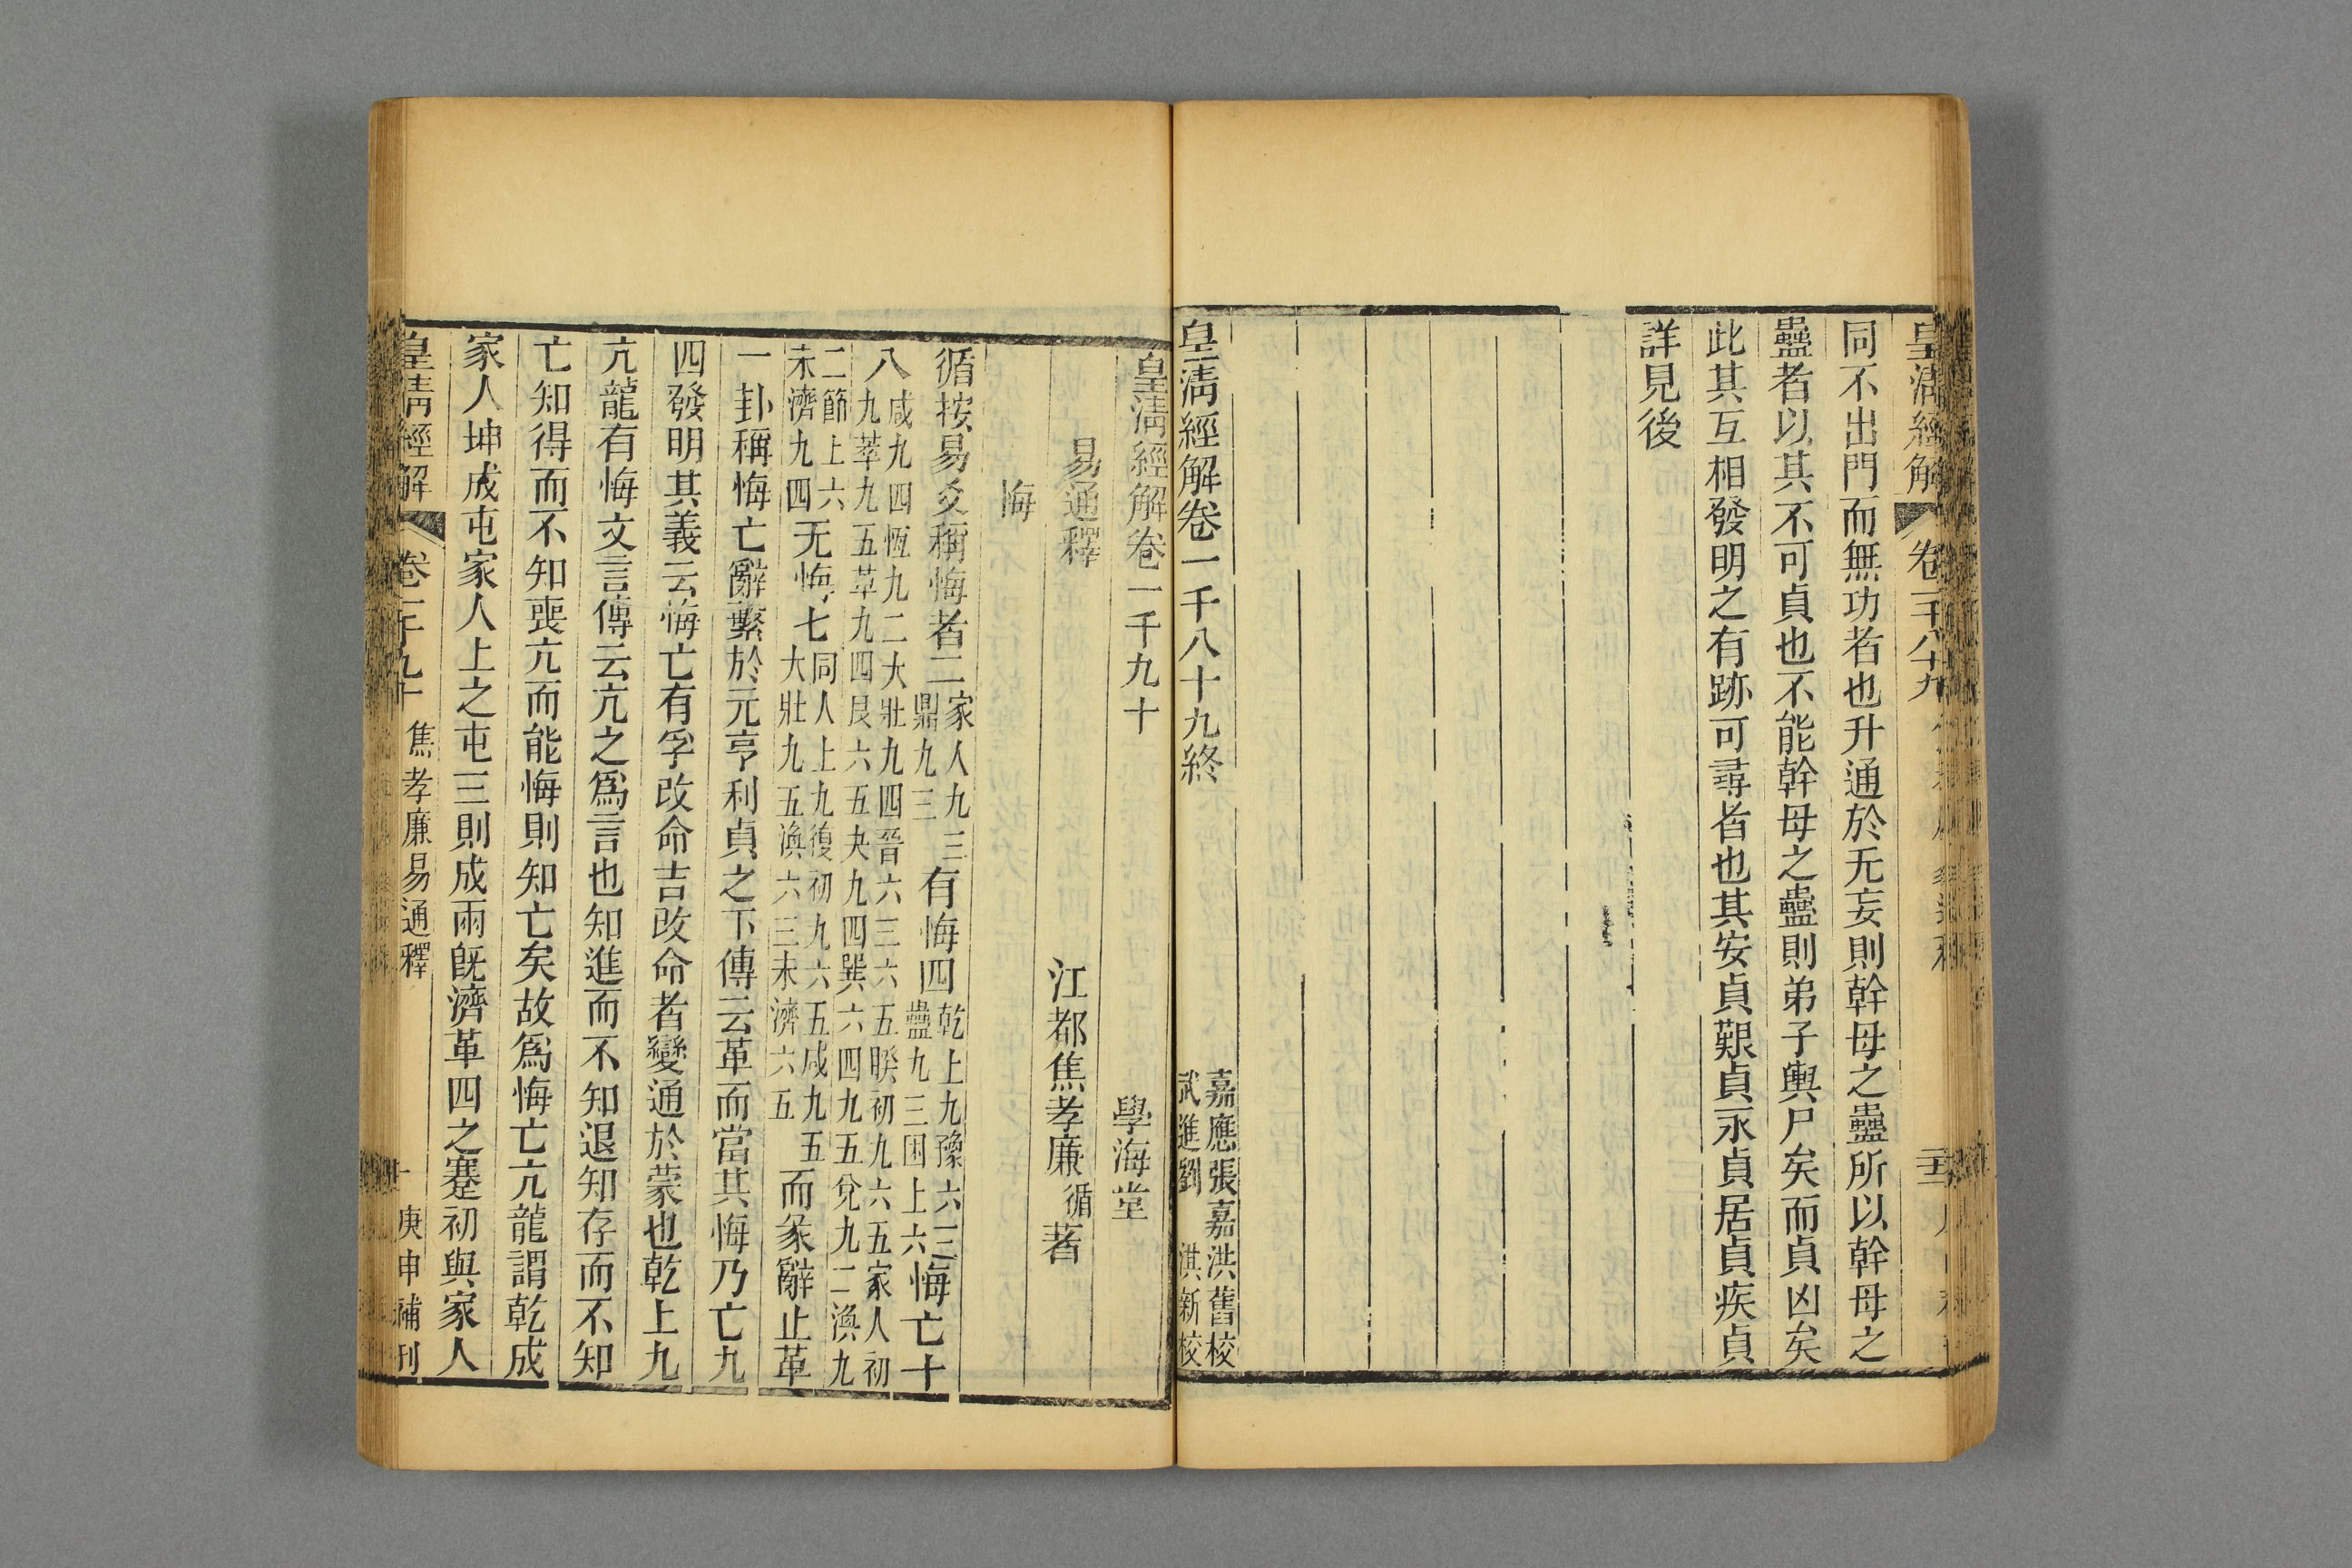 皇清經解
卷一千八十九
同不出門而無功者也升通於无妄則幹母之蠱所以幹母之
蠱者以其不可貞也不能幹母之蠱則弟子輿尸矣而貞凶矣
此其互相發明之有跡可尋者也其安貞艱貞永貞居貞疾貞
詳見後
皇清經解卷一千八十九終
嘉應張嘉洪舊校
武進劉 淇新校
皇清經解卷一千九十
學海堂
易通釋
江都焦孝廉循著
悔
循按易爻稱悔者二家人九三鼎九三有悔四乾上九豫六三蠱九三困上六悔亡十
八咸九四恆九二大壯九四晉六三六五睽初九六五家人初九萃九五革九四艮六五夬九四巽六四九五兌九二渙九
二節上六未濟九四无悔七同人上九復初九六五咸九五大壯九五渙六三未濟六五而彖辭止革
一卦稱悔亡辭繫於元亨利貞之下傳云革而當其悔乃亡九
四發明其義云悔亡有孚改命吉改命者變通於蒙也乾上九
亢龍有悔文言傳云亢之爲言也知進而不知退知存而不知
亡知得而不知喪亢而能悔則知亡矣故爲悔亡亢龍謂乾成
家人坤成屯家人上之屯三則成兩旣濟革四之蹇初與家人
皇清經解
卷一千九十
焦孝廉易通釋
一
庚申補刊